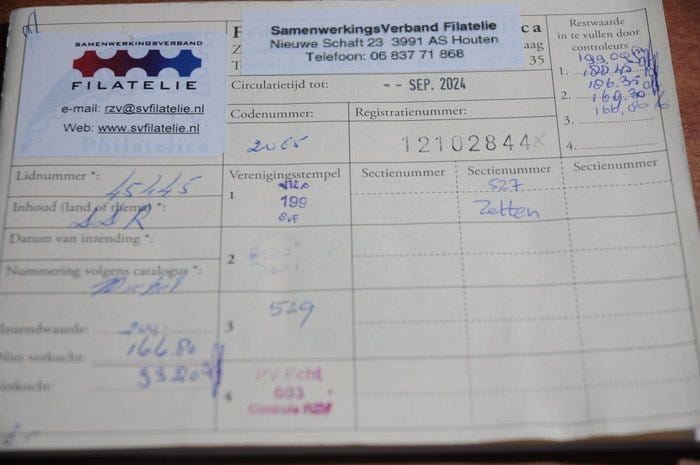 SAMENWERKINGSVERBAND
FILATELIE
e-mail: rzv@svfilatelie.nl
Web: www.svfilatelie.nl
Philatelica
SamenwerkingsVerband Filatelie
Nieuwe Schaft 23 3991 AS Houten
Telefoon: 06 837 71 868
ica
aag
35
Circulatietijd tot: - - SEP. 2024
Codenummer: 2065
Registratienummer: 12102844
Restwaarde
in te vullen door
controleurs
1.
2. 169.30
3. 166,80
4.
Lidnummer *: 45445
Inhoud (land of thema) *:
Datum van inzending *:
Nummering volgens catalogus *: Michel
Inzendwaarde:
Niet verkocht: 166.80
Verkocht: 33.20
Verenigingsstempel
1 199
2
3 529
4 PV Echt
603
Controle RZV
Sectienummer
Sectienummer
527
Zetten
Sectienummer